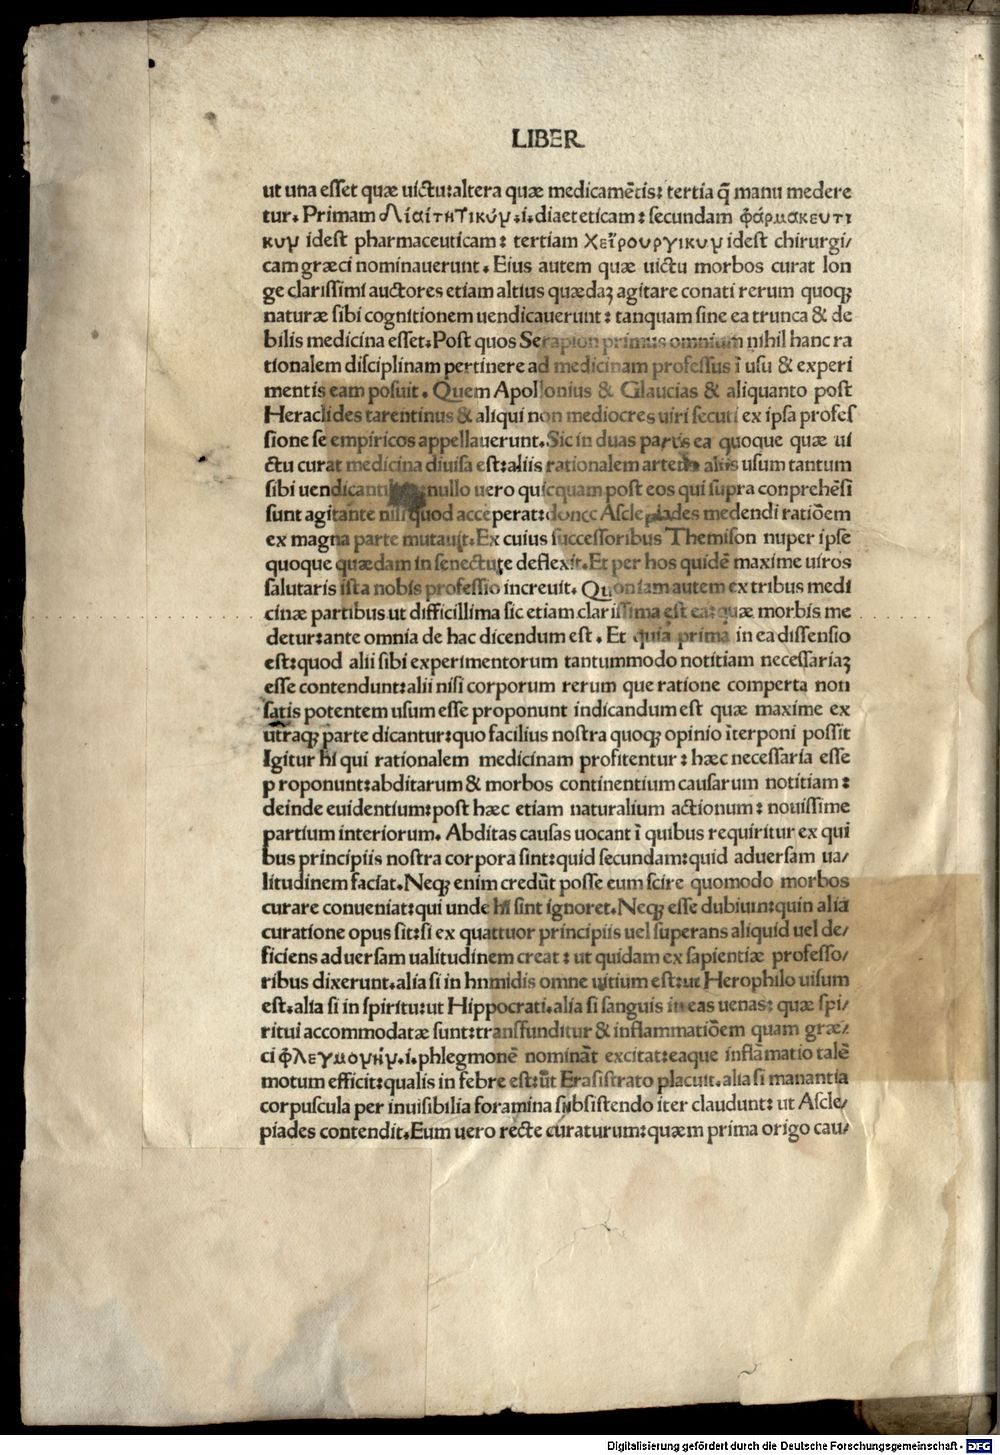 LIBER
ut una eſſet quæ uictu:altera quæ medicamētis: tertia q̄ manu medere
tur. Primam Διαιτητικὺν.i.diaeteticam: ſecundam φάρμακευτι
κυν ideſt pharmaceuticam: tertiam χεἴρουργικυν ideſt chirurgi/
cam græci nominauerunt. Eius autem quæ uictu morbos curat lon
ge clariſſimi auctores etiam altius quædaꝫ agitare conati rerum quoqꝫ
naturæ ſibi cognitionem uendicauerunt: tanquam ſine ea trunca & de
bilis medicina eſſet.Poſt quos Serapion primus omnium nihil hanc ra
tionalem diſciplinam pertinere ad medicinam profeſſus ī uſu & experi
mentis eam poſuit. Quem Apollonius & Glaucias & aliquanto poſt
Heraclides tarentinus & aliqui non mediocres uiri ſecuti ex ipſa profeſ
ſione ſe empiricos appellauerunt.Sic in duas partis ea quoque quæ ui
ctu curat medicina diuiſa eſt:aliis rationalem artem aliis uſum tantum
ſibi uendicantibus:nullo uero quicquam poſt eos qui ſupra conprehēſi
ſunt agitante niſi quod acceperat:donec Aſclepiades medendi ratiōem
ex magna parte mutauit.Ex cuius ſucceſſoribus Themiſon nuper ipſe
quoque quædam in ſenectute deflexit.Et per hos quidē maxime uiros
ſalutaris iſta nobis profeſſio increuit. Quoniam autem ex tribus medi
cinæ partibus ut difficillima ſic etiam clariſſima eſt ea:quæ morbis me
detur:ante omnia de hac dicendum eſt. Et quia prima in ea diſſenſio
eſt:quod alii ſibi experimentorum tantummodo notitiam neceſſariaꝫ
eſſe contendunt:alii niſi corporum rerum que ratione comperta non
ſatis potentem uſum eſſe proponunt indicandum eſt quæ maxime ex
utraqꝫ parte dicantur:quo facilius noſtra quoqꝫ opinio īterponi poſſit
Igitur hi qui rationalem medicinam profitentur: hæc neceſſaria eſſe
proponunt:abditarum & morbos continentium cauſarum notitiam:
deinde euidentium:poſt hæc etiam naturalium actionum: nouiſſime
partium interiorum. Abditas cauſas uocant ī quibus requiritur ex qui
bus principiis noſtra corpora ſint:quid ſecundam:quid aduerſam ua/
litudinem faciat.Neqꝫ enim credūt poſſe eum ſcire quomodo morbos
curare conueniat:qui unde hi ſint ignoret.Neqꝫ eſſe dubium:quin alia
curatione opus ſit:ſi ex quattuor principiis uel ſuperans aliquid uel de/
ficiens aduerſam ualitudinem creat: ut quidam ex ſapientiæ profeſſo/
ribus dixerunt.alia ſi in hnmidis omne uitium eſt:ut Herophilo uiſum
eſt.alia ſi in ſpiritu:ut Hippocrati.alia ſi ſanguis in eas uenas: quæ ſpi/
ritui accommodatæ ſunt:transfunditur & inflammatiōem quam græ/
ci φλεγμονὴν.i.phlegmonē nomināt excitat:eaque inflāmatio talē
motum efficit:qualis in febre eſt:ūt Eraſiſtrato placuit.alia ſi manantia
corpuſcula per inuiſibilia foramina ſubſiſtendo iter claudunt: ut Aſcle/
piades contendit.Eum uero recte curaturum:quæm prima origo cau/
Digitalisierung gefördert durch die Deutsche Forschungsgemeinschaft - DFG